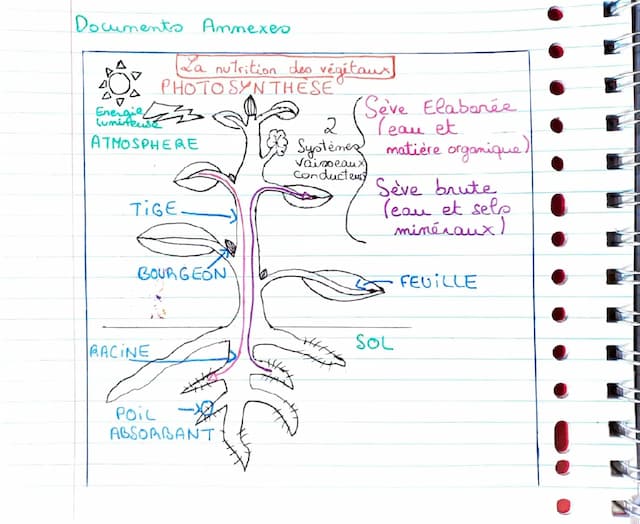 Documents Annexes
La nutrition des végétaux
PHOTOSYNTHÈSE
Energie
lumineuse
ATMOSPHERE
2
Systèmes
vaisseaux
conducteurs
Sève Elaborée
(eau et
matière organique)
Sève brute
(eau et sels
minéraux)
TIGE
BOURGEON
FEUILLE
RACINE
SOL
POIL
ABSORBANT